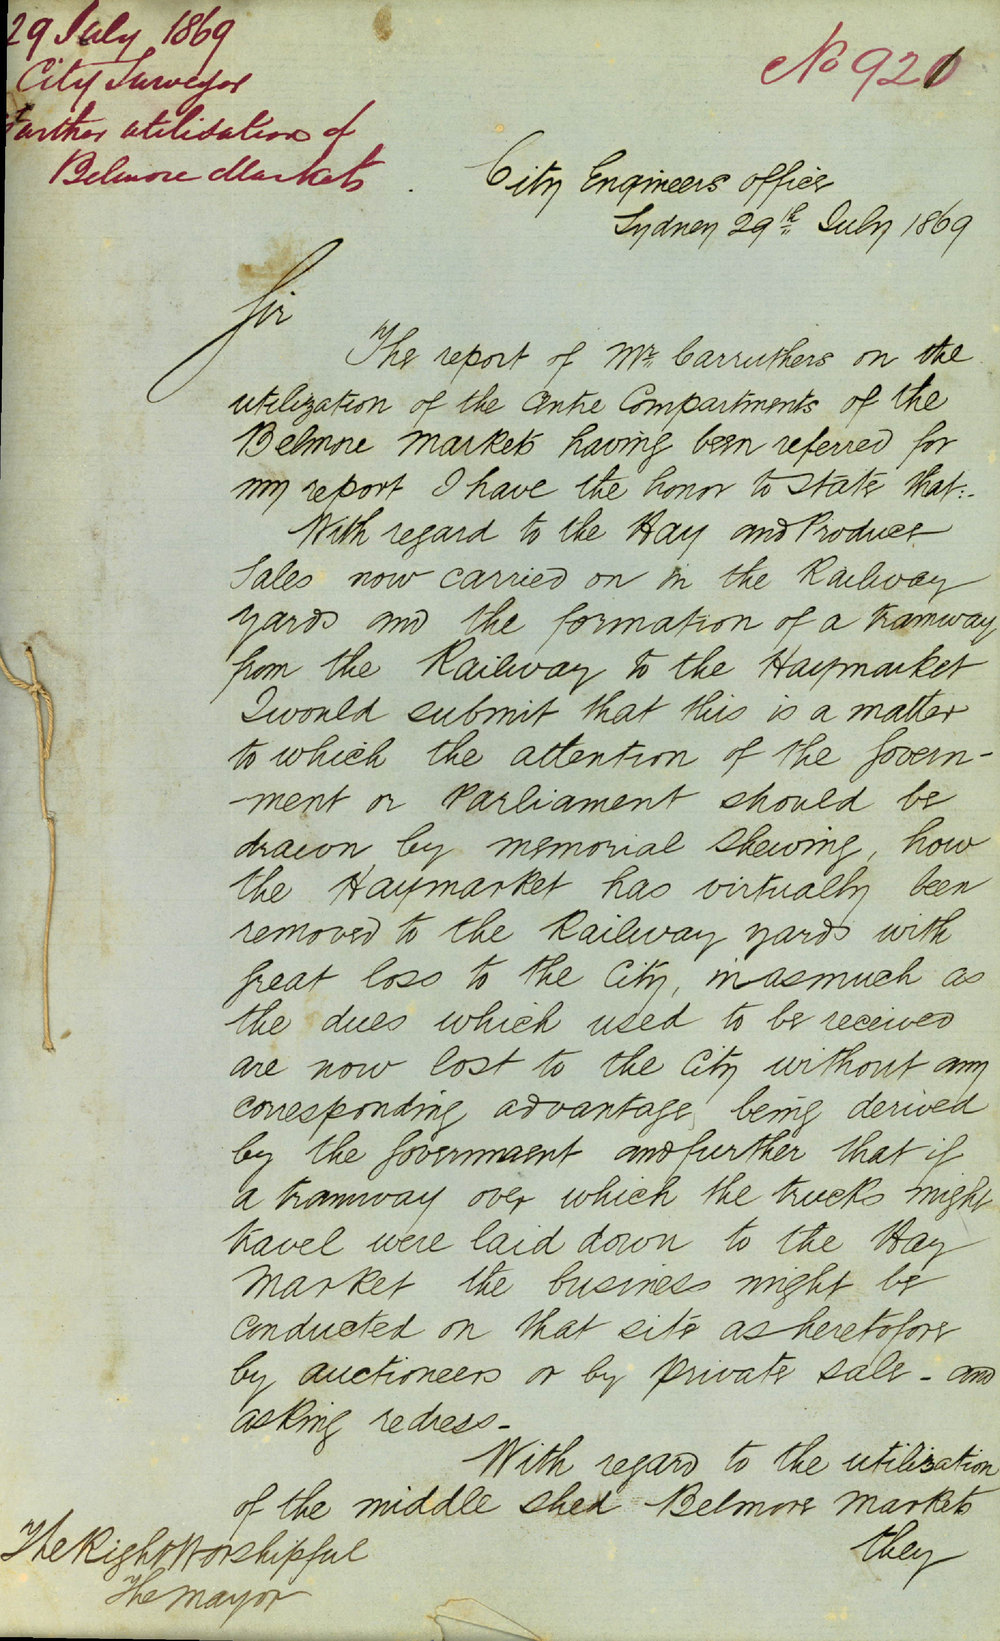 29 July 1869
City Surveyor
Further utilisation of
Belmore Markets
No 921
City Engineers Office
Sydney 29th July 1869
Sir
The report of Mr Carruthers on the
utilization of the Centre Compartments of the
Belmore Markets having been referred for
my report I have the honor to state that:-
With regard to the Hay and Produce
Sales now carried on in the Railway
yards and the formation of a tramway
from the Railway to the Haymarket
I would submit that this is a matter
to which the attention of the Govern-
-ment or Parliament should be
drawn by memorial shewing, how
the Haymarket has virtually been
removed to the Railway yards with
great loss to the City, inasmuch as
the dues which used to be received
are now lost to the City without any
corresponding advantage being derived
by the Government and further that if
a tramway over which the trucks might
travel were laid down to the Hay
Market the business might be
conducted on that site as heretofore
by auctioneers or by private sale - and
asking redress -
With regard to the utilization
of the middle shed Belmore Markets
they
The Right Worshipful
The Mayor